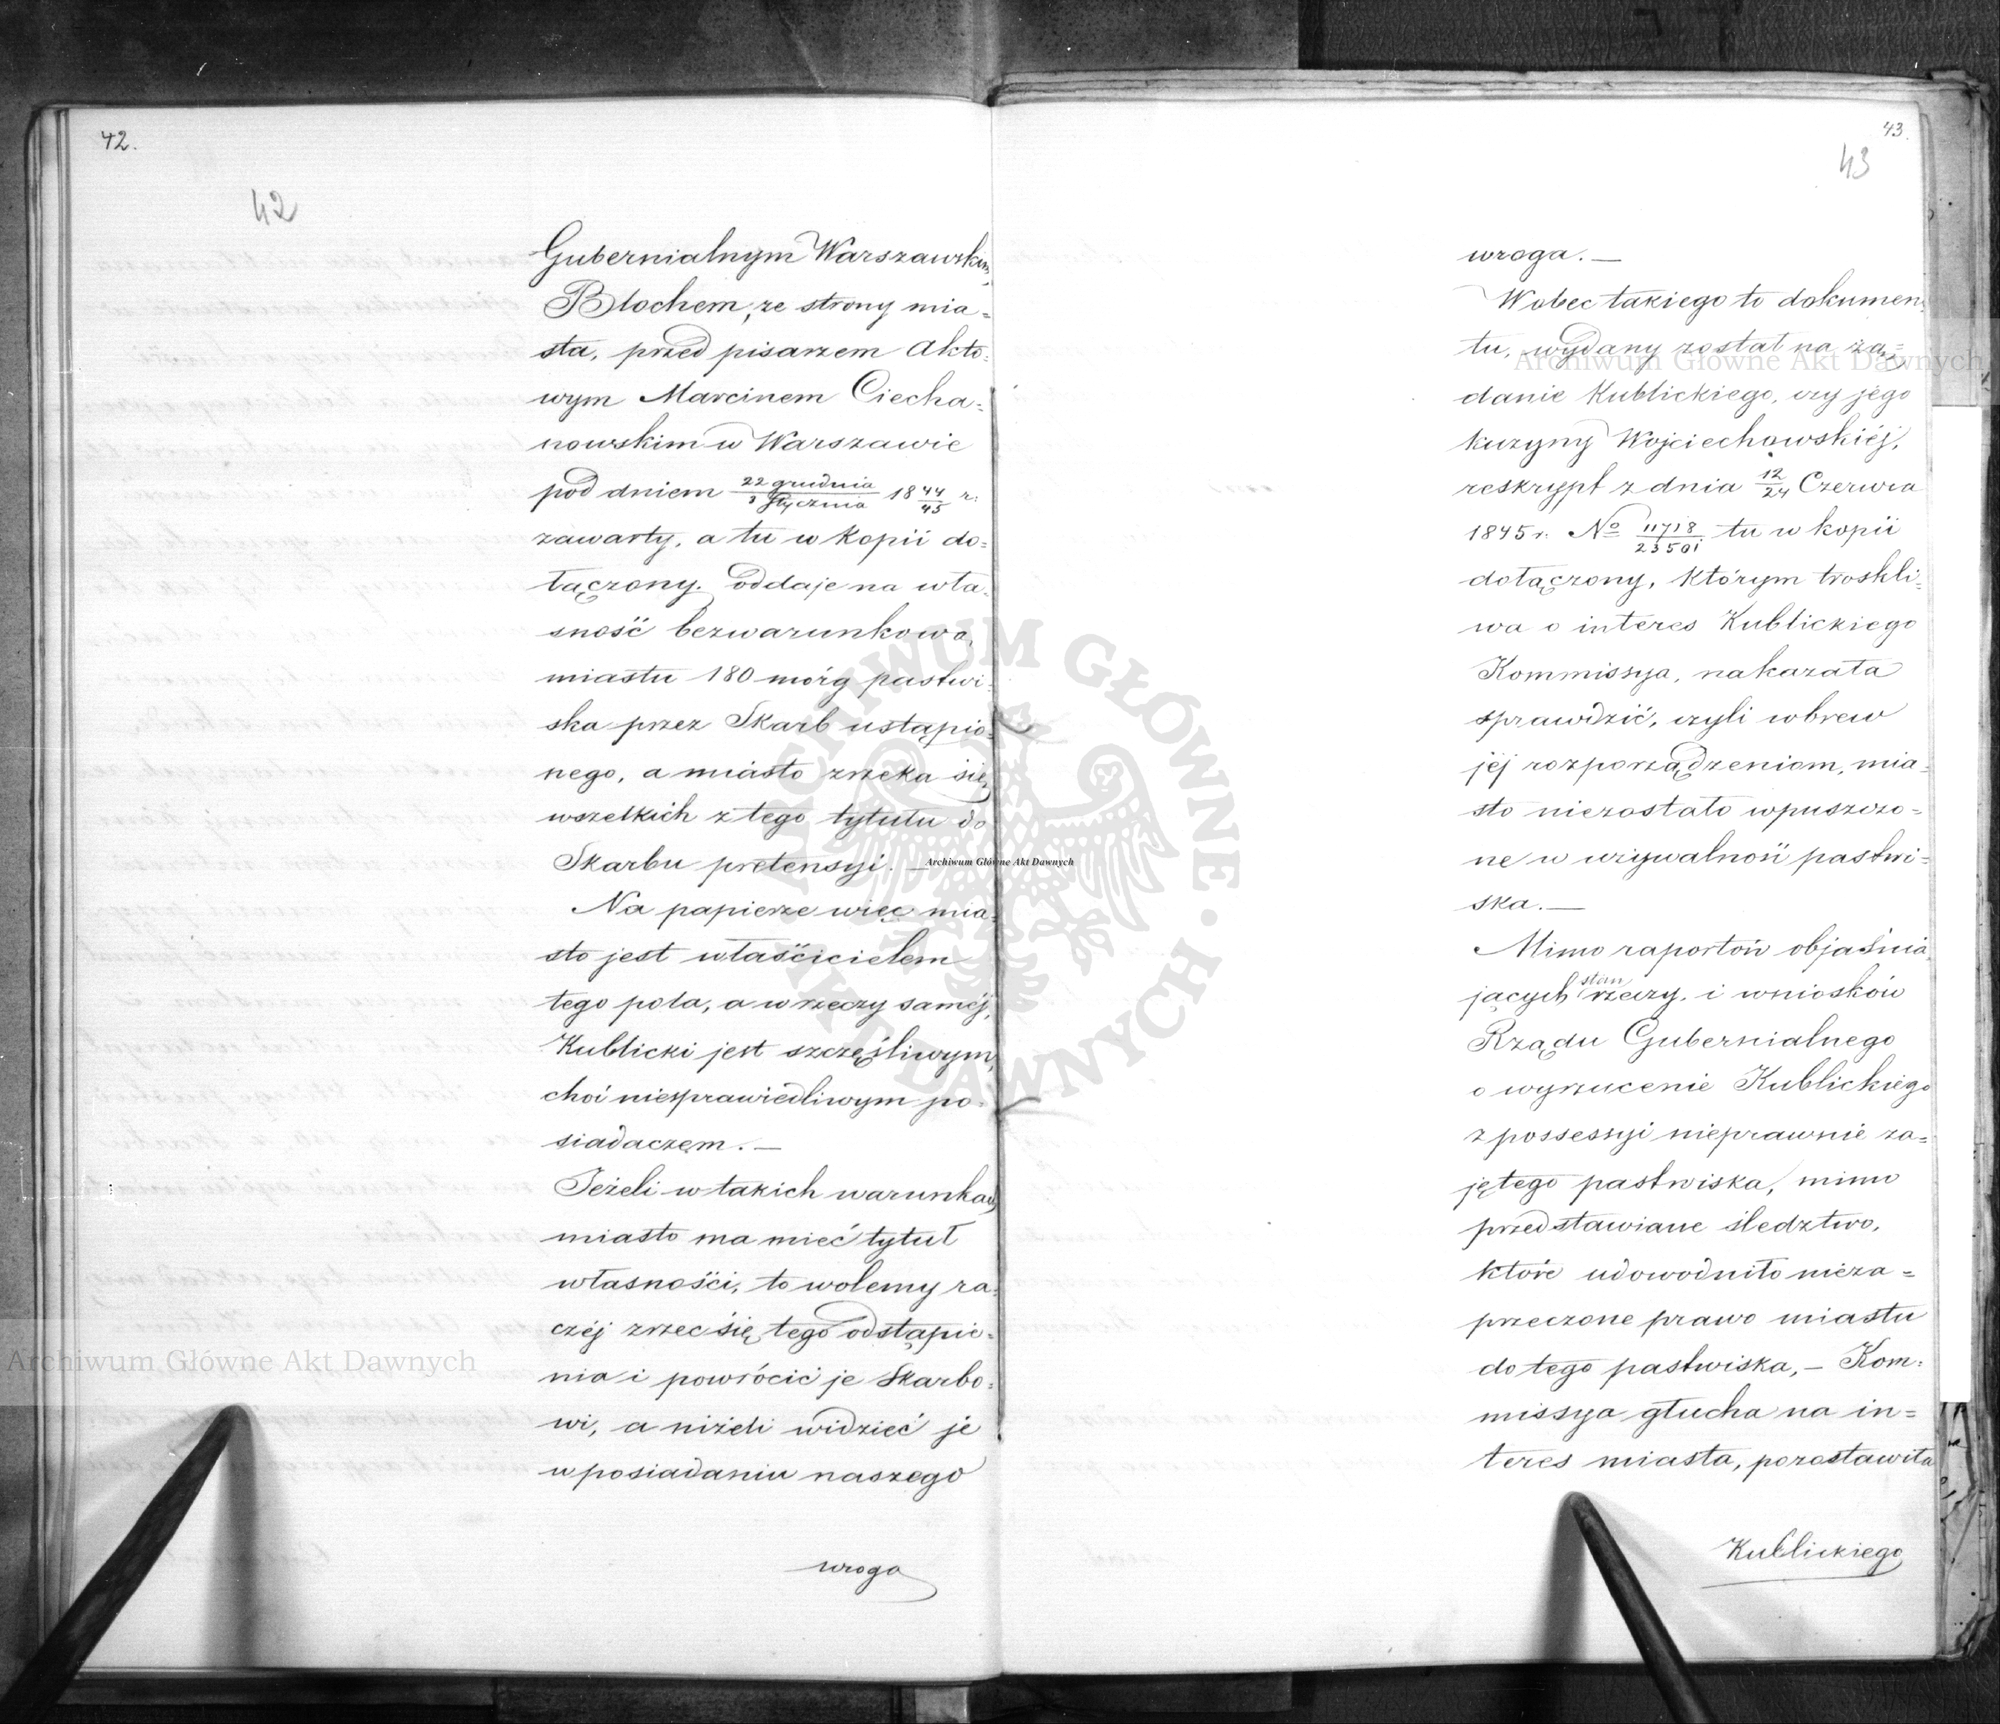 42.
42
Gubernialnym Warszawskim,
Blochem, ze strony mia=
sta, przed pisarzem Akto=
wym Marcinem Ciecha=
nowskim w Warszawie
pod dniem 22 grudnia / 3 stycznia 18 44/45 r:
zawarty, a tu w kopii do=
łączony. oddaje na wła=
sność bezwarunkową,
miastu 180 mórg pastwi=
ska przez Skarb ustąpio=
nego, a miasto zrzeka się
wszelkich z tego tytułu do
Skarbu pretensyi. —
Na papierze więc mia=
sto jest właścicielem
tego pola, a w rzeczy saméj,
Kublicki jest szczęśliwym,
choć niesprawiedliwym po=
siadaczem. —
Jeżeli w takich warunkach
miasto ma mieć tytuł
własności, to wolemy ra=
czéj zrzec się tego odstąpie=
nia i powrócić je Skarbo=
wi, a niżeli widzieć je
w posiadaniu naszego
wroga
43.
43
wroga. —
Wobec takiego to dokumen=
tu, wydany został na żą=
danie Kublickiego, czy jego
kuzyny Wojciechowskiéj,
reskrypt z dnia 12/24 Czerwca
1845 r. No 11718/23501 tu w kopii
dołączony, którym troskli=
wa o interes Kublickiego
Kommissya, nakazała
sprawdzić, czyli wbrew
jéj rozporządzeniom, mia=
sto niezostało wpuszczo=
ne w używalność pastwi=
ska. —
Mimo raportów objaśnia=
jących stan rzeczy, i wniosków
Rządu Gubernialnego
o wyrzucenie Kublickiego
z possessyi nieprawnie za=
jętego pastwiska, mimo
przedstawiane śledztwo,
które udowodniło nieza=
przeczone prawo miastu
do tego pastwiska, — Kom=
missya głucha na in=
teres miasta, pozostawiła
Kublickiego
Archiwum Główne Akt Dawnych
Archiwum Główne Akt Dawnych
Archiwum Główne Akt Dawnych
ARCHIWUM GŁÓWNE · AKT DAWNYCH ·